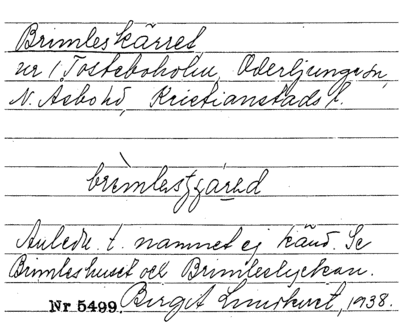 Brimleskärret
nr 1 Tosteboholm, Oderljunga sn,
N. Åsbo hd, Kristianstads l.
brimles
Anledn. t. namnet ej känd. Se
Brimleshuset och Brimleslyckan.
Nr 5499. Birgit Lundkvist, 1938.